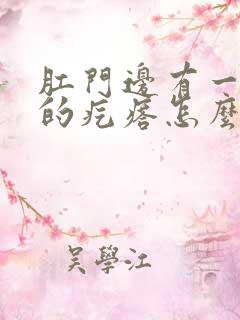 肛門邊有一
的疙瘩怎麼
吳學江